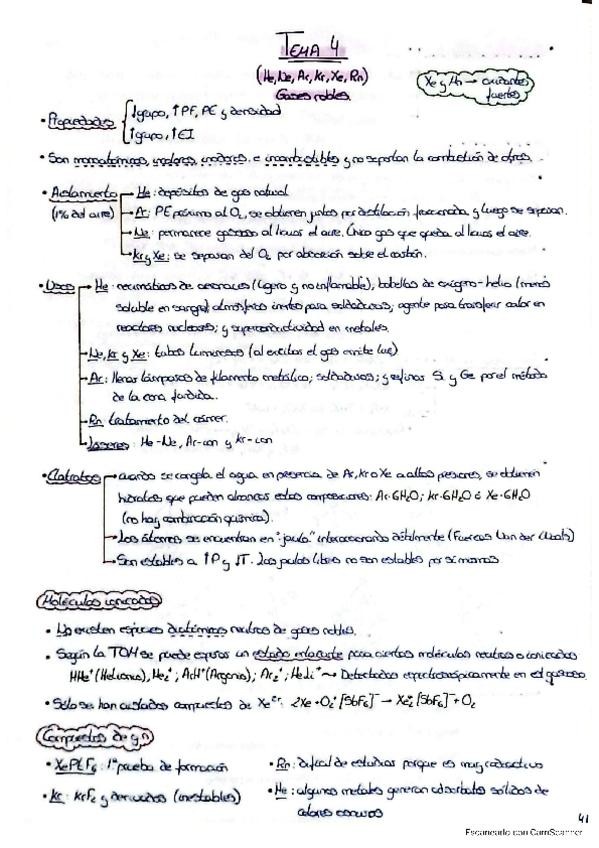 TEMA 4
(He, Ne, Ar, Kr, Xe, Rn)
Gases nobles.
Xe y Rn → oxidantes
fuertes
• Propiedades
↓grupo, ↑PF, PE y densidad
↑grupo, ↑EI
• Son monoatómicos, incoloros, inodoros e incombustibles y no soportan la combustión de otros.
• Aislamiento
(1% del aire)
He: depósitos de gas natural
Ar: PE próximo al O₂, se obtienen juntos por destilación fraccionada y luego se separan.
Ne: permanece gaseoso al licuar el aire. Único gas que queda al licuar el aire.
Kr y Xe: se separan del O₂ por absorción sobre el carbón.
• Usos
He: neumáticos de aeronaves (ligero y no inflamable); botellas de oxígeno-helio (menos
soluble en sangre); atmósferas inertes para soldaduras; agente para transferir calor en
reactores nucleares; y superconductividad en metales.
Ne, Kr y Xe: tubos luminosos (al excitar el gas emite luz)
Ar: llenar lámparas de filamento metálico; soldaduras; y refinar Si y Ge por el método
de la zona fundida.
Rn: tratamiento del cáncer.
Láseres: He-Ne, Ar-ion y Kr-ion
• Clatratos
cuando se congela el agua en presencia de Ar, Kr o Xe a altas presiones, se obtienen
hidratos que pueden alcanzar estas composiciones: Ar·6H₂O; Kr·6H₂O ó Xe·6H₂O
(no hay combinación química).
Los átomos se encuentran en "jaula" interaccionando débilmente (Fuerzas Van der Waals)
Son estables a ↑P y ↓T. Las jaulas libres no son estables por sí mismas
Moléculas ionizadas
• No existen especies diatómicas neutras de gases nobles.
• Según la TOM se puede esperar un estado enlazante para ciertas moléculas neutras o ionizadas
HHe⁺ (Helionio), He₂⁺; ArH⁺ (Argonio); Ar₂⁺; HeLi⁺ → Detectados espectroscópicamente en est gaseoso
• Sólo se han aislado compuestos de Xe₂⁺: 2Xe + O₂⁺[SbF₆]⁻ → Xe₂⁺[SbF₆]⁻ + O₂
Compuestos de g.n
• XePtF₆: 1ª prueba de formación
• Kr: KrF₂ y derivados (inestables)
• Rn: difícil de estudiar porque es muy radiactivo
• He: algunos metales generan adsorbatos sólidos de
colores oscuros
41
Escaneado con CamScanner